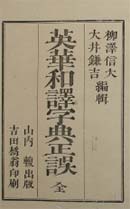 柳澤信大
大井鎌吉 編輯
英華和譯字典正誤 全
山內𨏍出版
吉田橘翁印刷